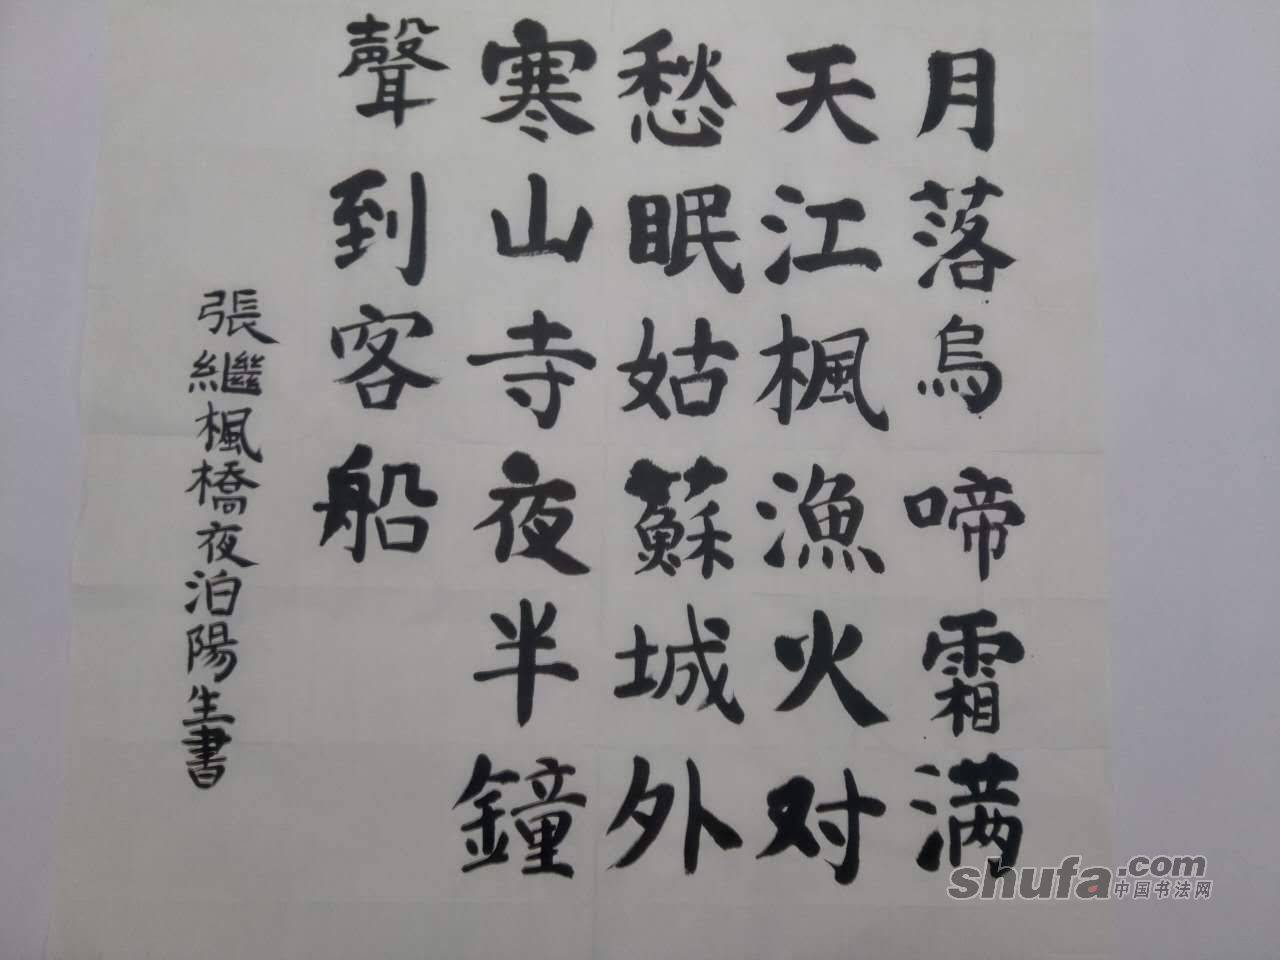 月落烏啼霜满
天江楓漁火对
愁眠姑蘇城外
寒山寺夜半鐘
聲到客船
張繼楓橋夜泊陽生書
shufa.com
中国书法网